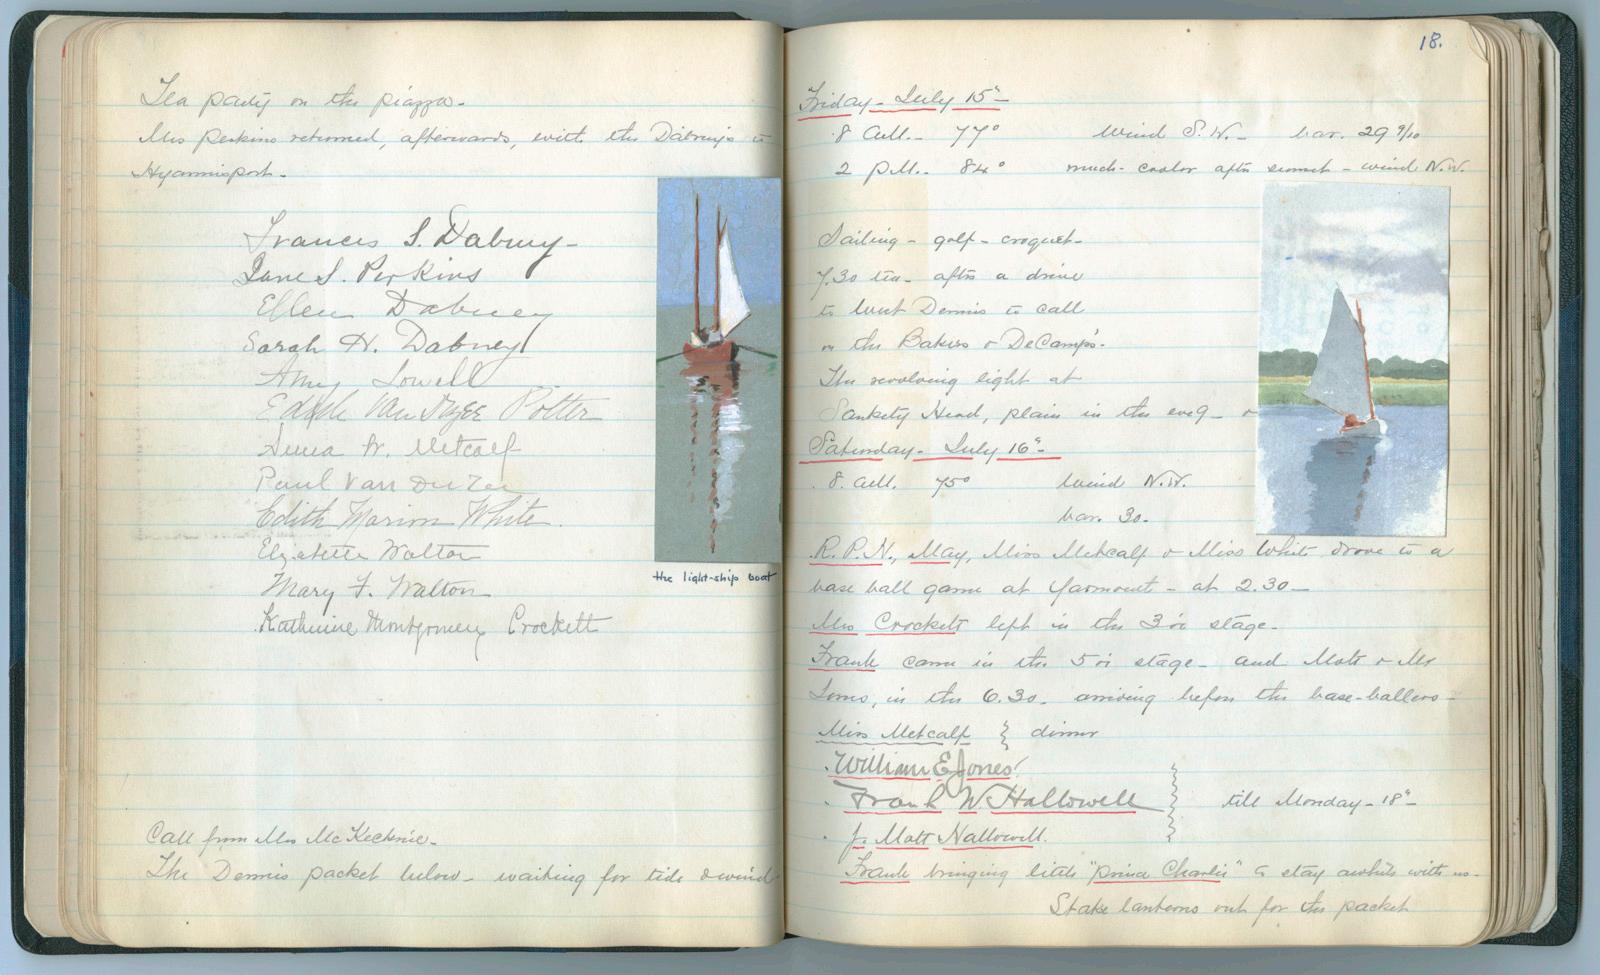 Tea party on the piazza -
Mrs Perkins returned, afterwards, with the Dabney's to
Hyannisport -
Frances S. Dabney -
Jane S. Perkins
Ellen Dabney
Sarah H. Dabney
Amy Lowell
Edith Van Potter
Anna W. Metcalf
Paul Van
Edith Marion White.
Elizabeth Walton
Mary F. Walton
Katherine Montgomery Crockett
the light-ship boat
Call from Mrs McKechnie -
The Dennis packet below - waiting for tide & wind
18.
Friday - July 15"
8 A.M. - 77° Wind S.W. - bar. 29 9/10
2 P.M. - 84° much cooler after sunset - wind N.W.
Sailing - golf - croquet -
7.30 tea - after a drive
to West Dennis to call
on the Bakers & DeCamp's -
The revolving light at
Sankety Head, plain in the eve'g -
Saturday - July 16"
8. A.M. 75° Wind N.W.
bar. 30.
R.P.H., May, Miss Metcalf & Miss White drove to a
base ball game at Yarmouth - at 2.30 -
Mrs Crockett left in the 3 stage -
Frank came in the 5 stage - and Matt & Mr
Jones, in the 6.30 - arriving before the base-ballers -
Miss Metcalf } dinner
William E Jones
Frank W. Hallowell } till Monday - 18"
J. Mott Hallowell.
Frank bringing little "Prince Charlie" to stay awhile with us -
Stake lanterns out for the packet